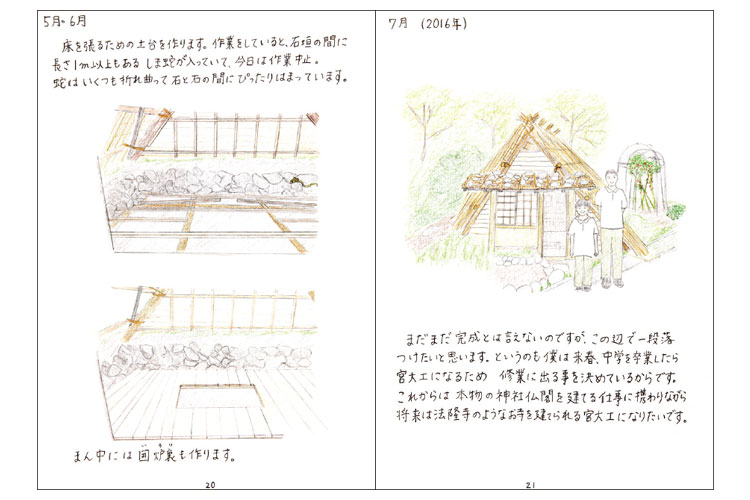 5月・6月
床を張るための土台を作ります。作業をしていると、石垣の間に
長さ1m以上もある しま蛇が入っていて、今日は作業中止。
蛇は いくつも折れ曲って石と石の間に ぴったりはまっています。
まん中には 囲炉裏も作ります。
いろり
20
7月 (2016年)
まだまだ 完成とは言えないのですが、この辺で一段落
つけたいと思います。というのも僕は来春、中学を卒業したら
宮大工になるため 修業に出る事を決めているからです。
これからは 本物の神社仏閣を建てる仕事に携わりながら
将来は法隆寺のようなお寺を建てられる宮大工になりたいです。
21